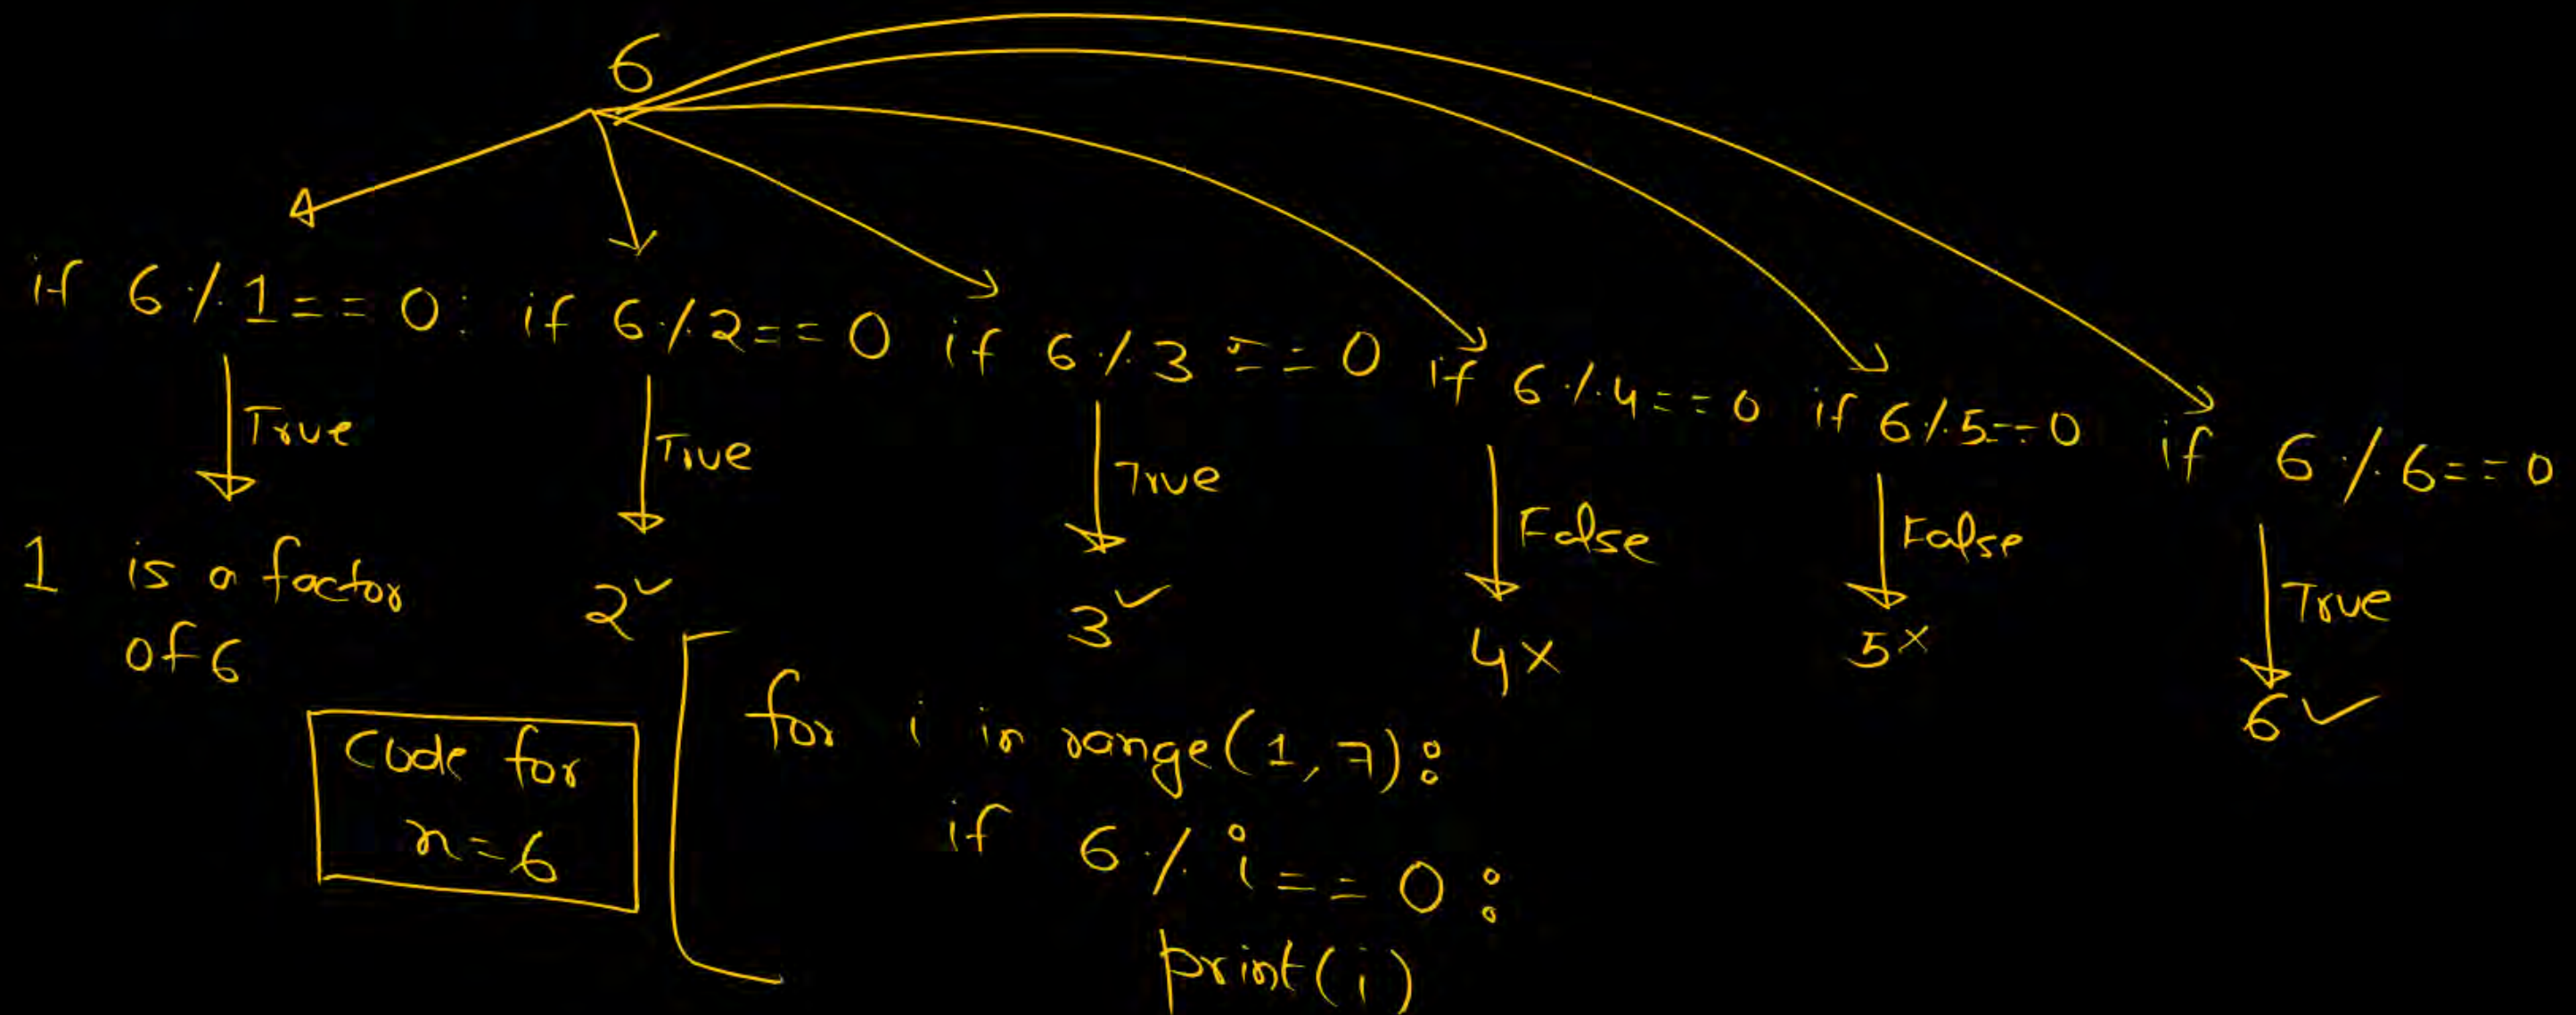 6
if 6 % 1 == 0: if 6 % 2 == 0 if 6 % 3 == 0 if 6 % 4 == 0 if 6 % 5 == 0 if 6 % 6 == 0
True True True False False True
1 is a factor
of 6
2 ✓ 3 ✓ 4 × 5 × 6 ✓
Code for
n=6
for i in range(1, 7):
if 6 % i == 0:
print(i)